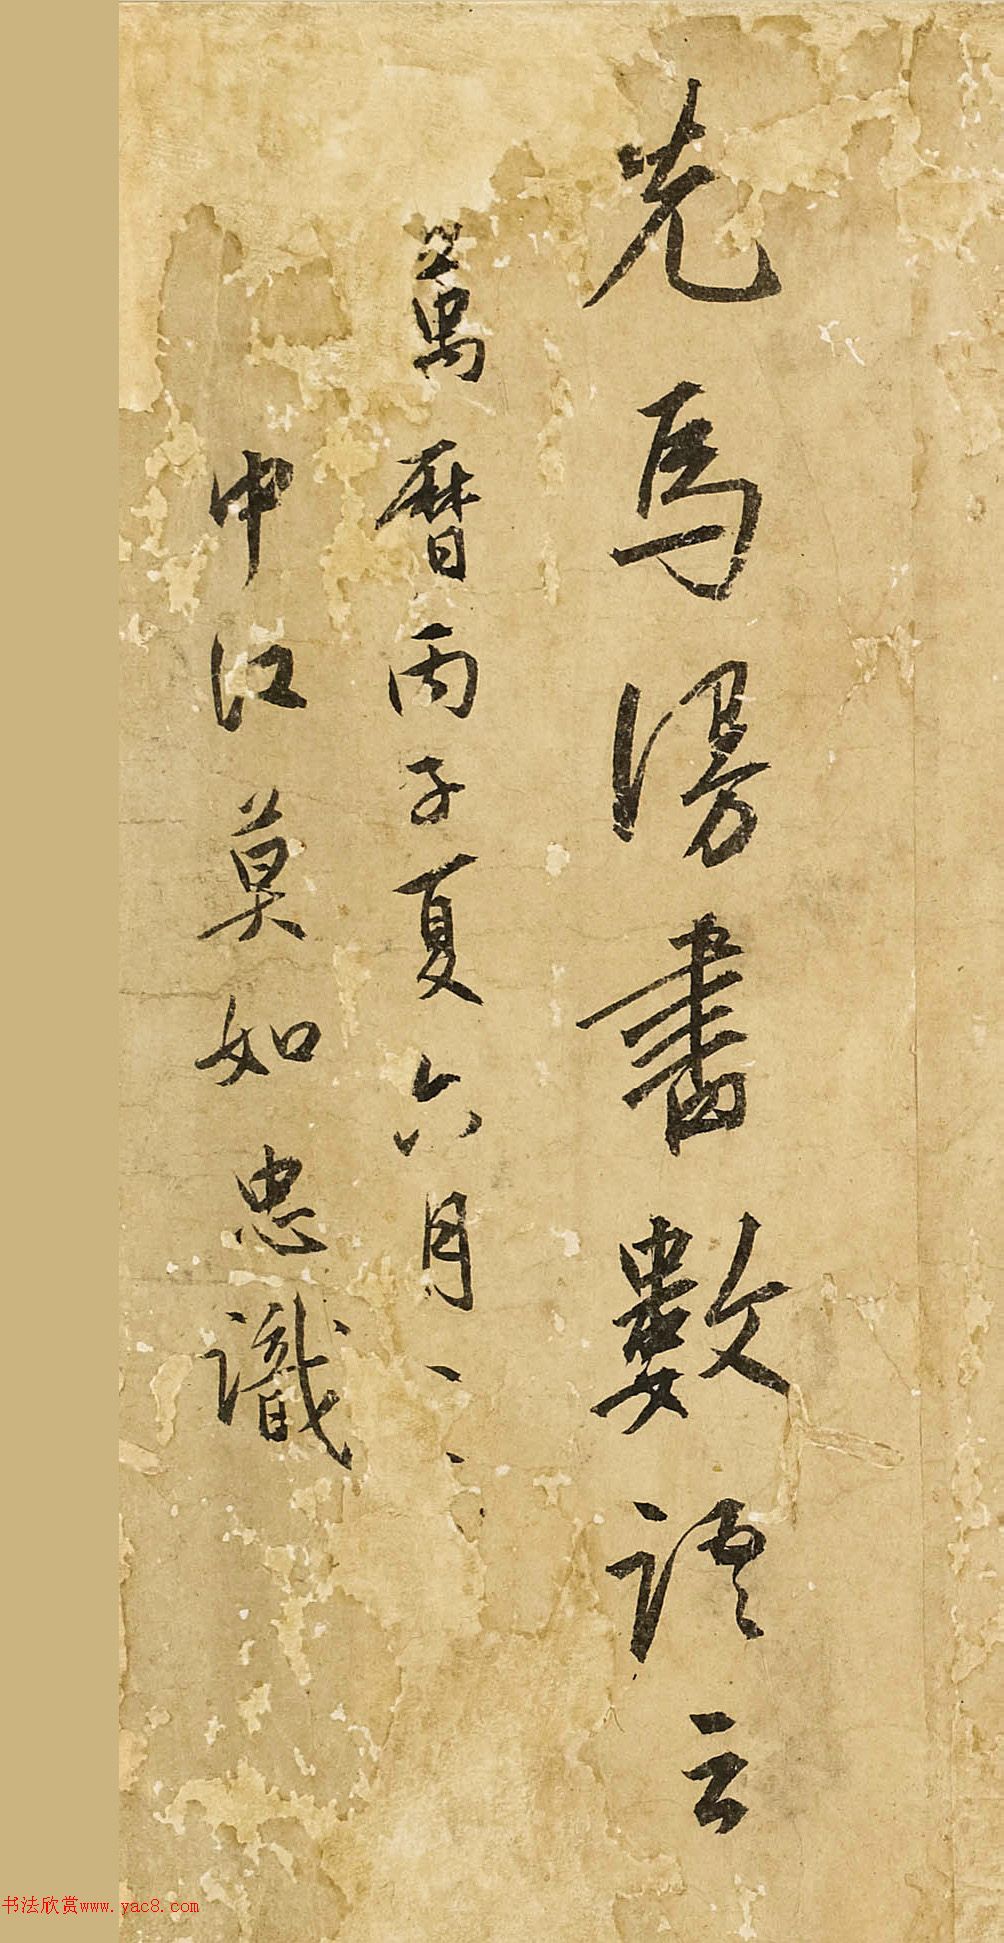 先焉漫書數語云
萬曆丙子夏六月
中江莫如忠識
书法欣赏www.yac8.com